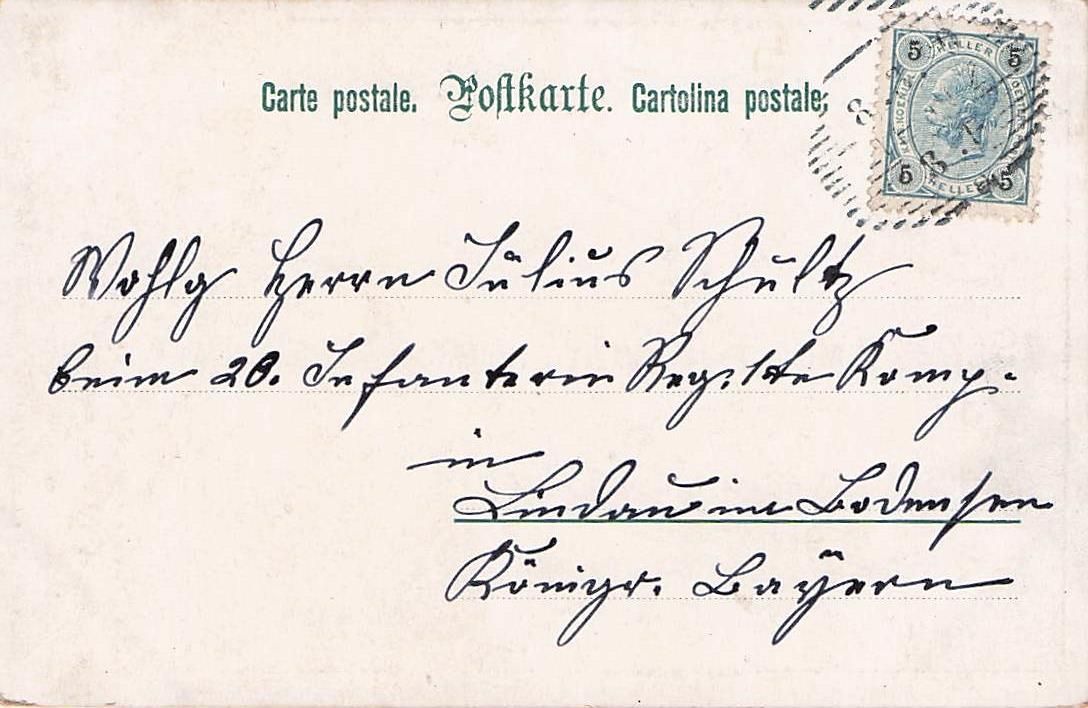 Carte postale. Postkarte. Cartolina postale.
5 5
5 5
Wohlg Herrn Julius Schultz
beim 20. Infanterie Reg. 1te Komp.
in
Lindau im Bodensee
Königr. Bayern